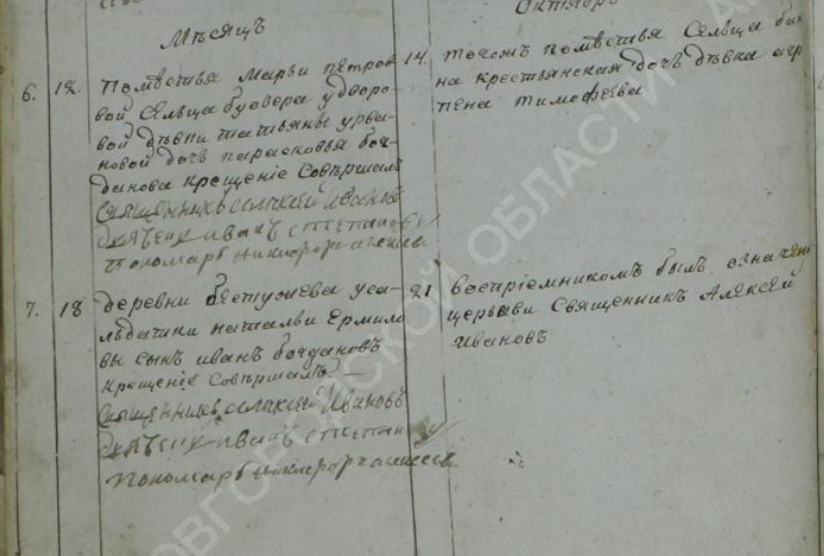 Мѣсяцъ
Октябрь
6. 12. помѣстья Марьи петро-
вой сельца буовера у дворо-
вой дѣвки татьяны урва-
новой дочь парасковья бог-
данова крещеніе совѣршалъ
Священникъ алѣксей Ивановъ
дьячекъ иванъ степановъ
пономарь никифоръ
14. тогожъ помѣстья сельца
на крестьянская дочь дѣвка агр
пена тимофеева
7. 18 деревни бестужева у са-
льдатки натальи Ермило
вы сынъ иванъ богдановъ
крещеніе совѣршалъ
Священникъ алѣксей Ивановъ
дьячекъ иванъ степановъ
пономарь никифоръ
21 воспріемникомъ былъ означен
церкви священникъ Алѣксей
Ивановъ
НОВГОРОДСКОЙ ОБЛАСТИ